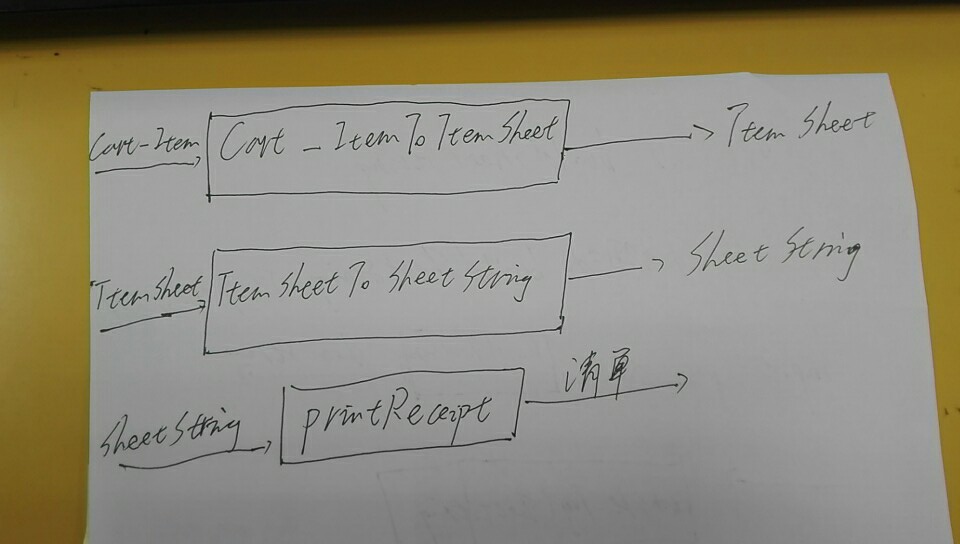 Cart-Item Cart_ItemToItemSheet ItemSheet
ItemSheet ItemSheetToSheetString SheetString
SheetString printReceipt 清单